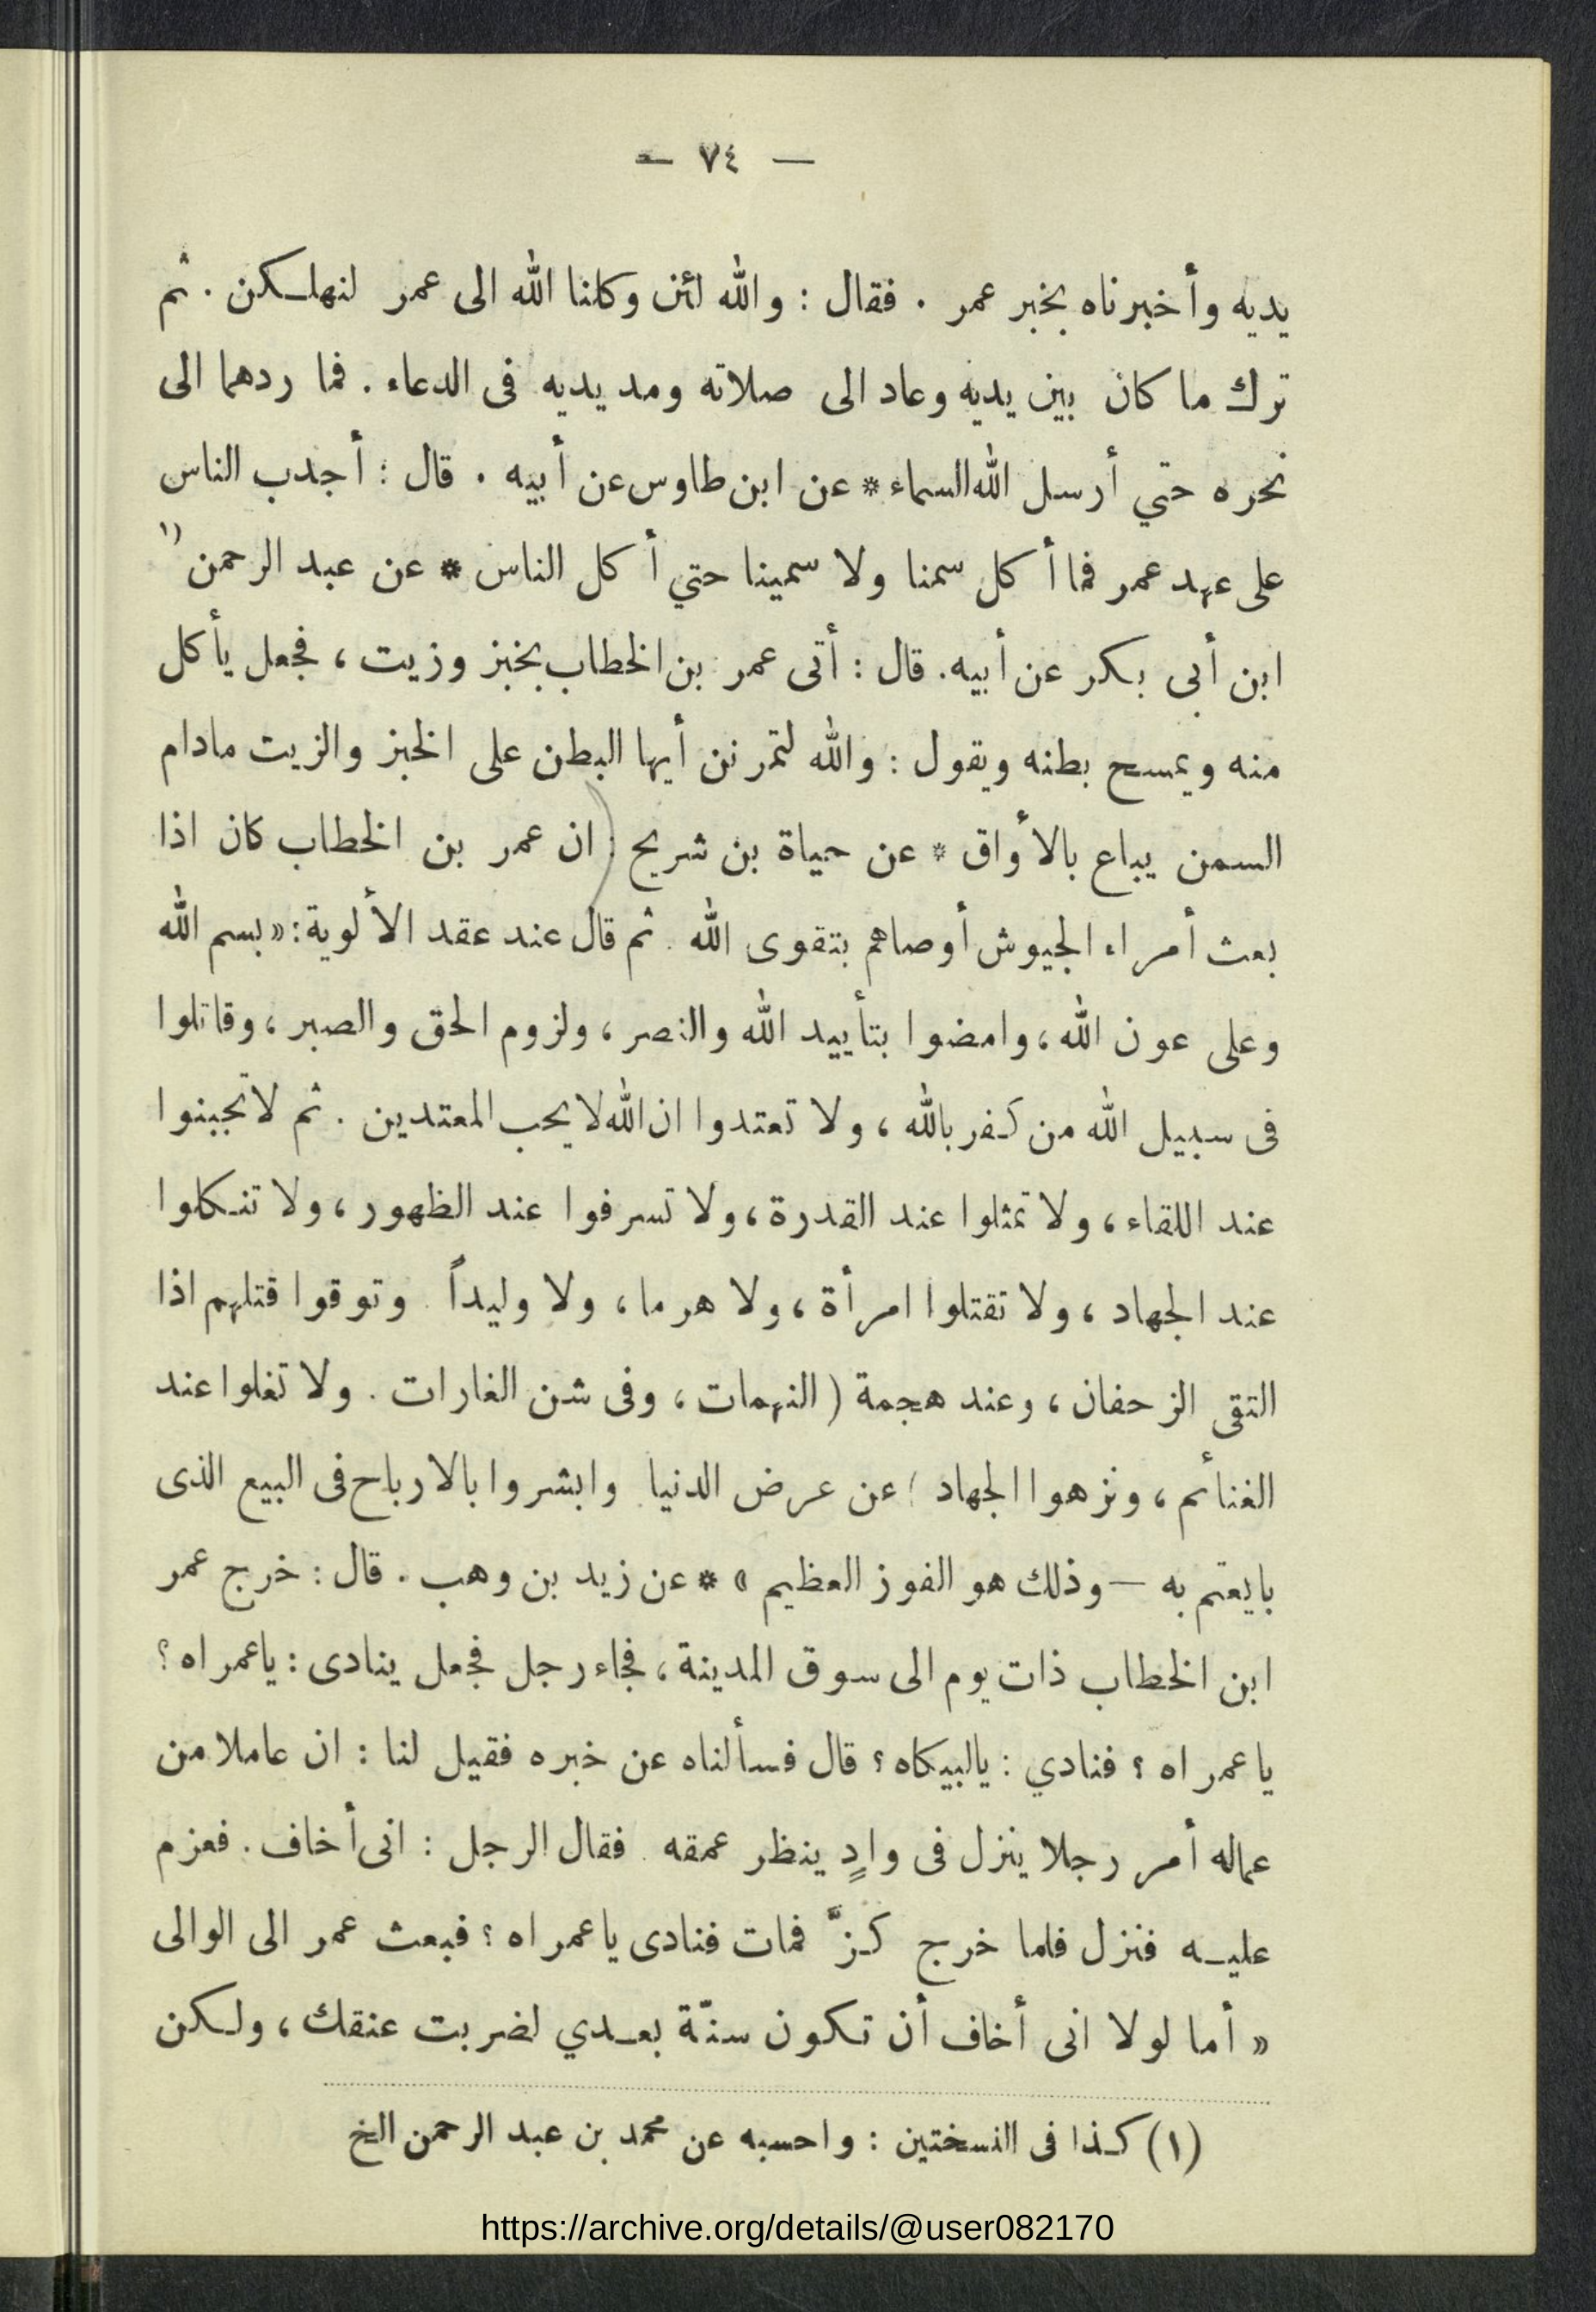 — ٧٤ —
يديه وأخبرناه بخبر عمر . فقال : والله لئن وكلنا الله الى عمر لنهلكن . ثم
ترك ما كان بين يديه وعاد الى صلاته ومد يديه فى الدعاء . فما ردهما الى
نحره حتي أرسل الله السماء * عن ابن طاوس عن أبيه . قال : أجدب الناس
على عهد عمر فما أكل سمنا ولا سمينا حتي أكل الناس * عن عبد الرحمن (١
ابن أبى بكر عن أبيه. قال : أتى عمر بن الخطاب بخبز وزيت ، فجعل يأكل
منه ويمسح بطنه ويقول : والله لتمرنن أيها البطن على الخبز والزيت مادام
السمن يباع بالأواق * عن حياة بن شريح ( ان عمر بن الخطاب كان اذا
بعث أمراء الجيوش أوصاهم بتقوى الله . ثم قال عند عقد الألوية : « بسم الله
وعلى عون الله ، وامضوا بتأييد الله والنصر ، ولزوم الحق والصبر ، وقاتلوا
فى سبيل الله من كفر بالله ، ولا تعتدوا ان الله لا يحب المعتدين . ثم لا تجبنوا
عند اللقاء ، ولا تمثلوا عند القدرة ، ولا تسرفوا عند الظهور ، ولا تنكلوا
عند الجهاد ، ولا تقتلوا امرأة ، ولا هرما ، ولا وليداً . وتوقوا قتلهم اذا
التقى الزحفان ، وعند هجمة ( النهمات ، وفى شن الغارات . ولا تغلوا عند
الغنائم ، ونزهوا الجهاد ) عن عرض الدنيا . وابشروا بالارباح فى البيع الذى
بايعتم به — وذلك هو الفوز العظيم » * عن زيد بن وهب . قال : خرج عمر
ابن الخطاب ذات يوم الى سوق المدينة ، فجاء رجل فجعل ينادى : ياعمراه ؟
ياعمراه ؟ فنادي : يالبيكاه ؟ قال فسألناه عن خبره فقيل لنا : ان عاملا من
عماله أمر رجلا ينزل فى وادٍ ينظر عمقه . فقال الرجل : انى أخاف . فعزم
عليه فنزل فلما خرج كزَّ فمات فنادى ياعمراه ؟ فبعث عمر الى الوالى
« أما لولا انى أخاف أن تكون سنّة بعدي لضربت عنقك ، ولكن
(١) كذا فى النسختين : واحسبه عن محمد بن عبد الرحمن الخ
https://archive.org/details/@user082170